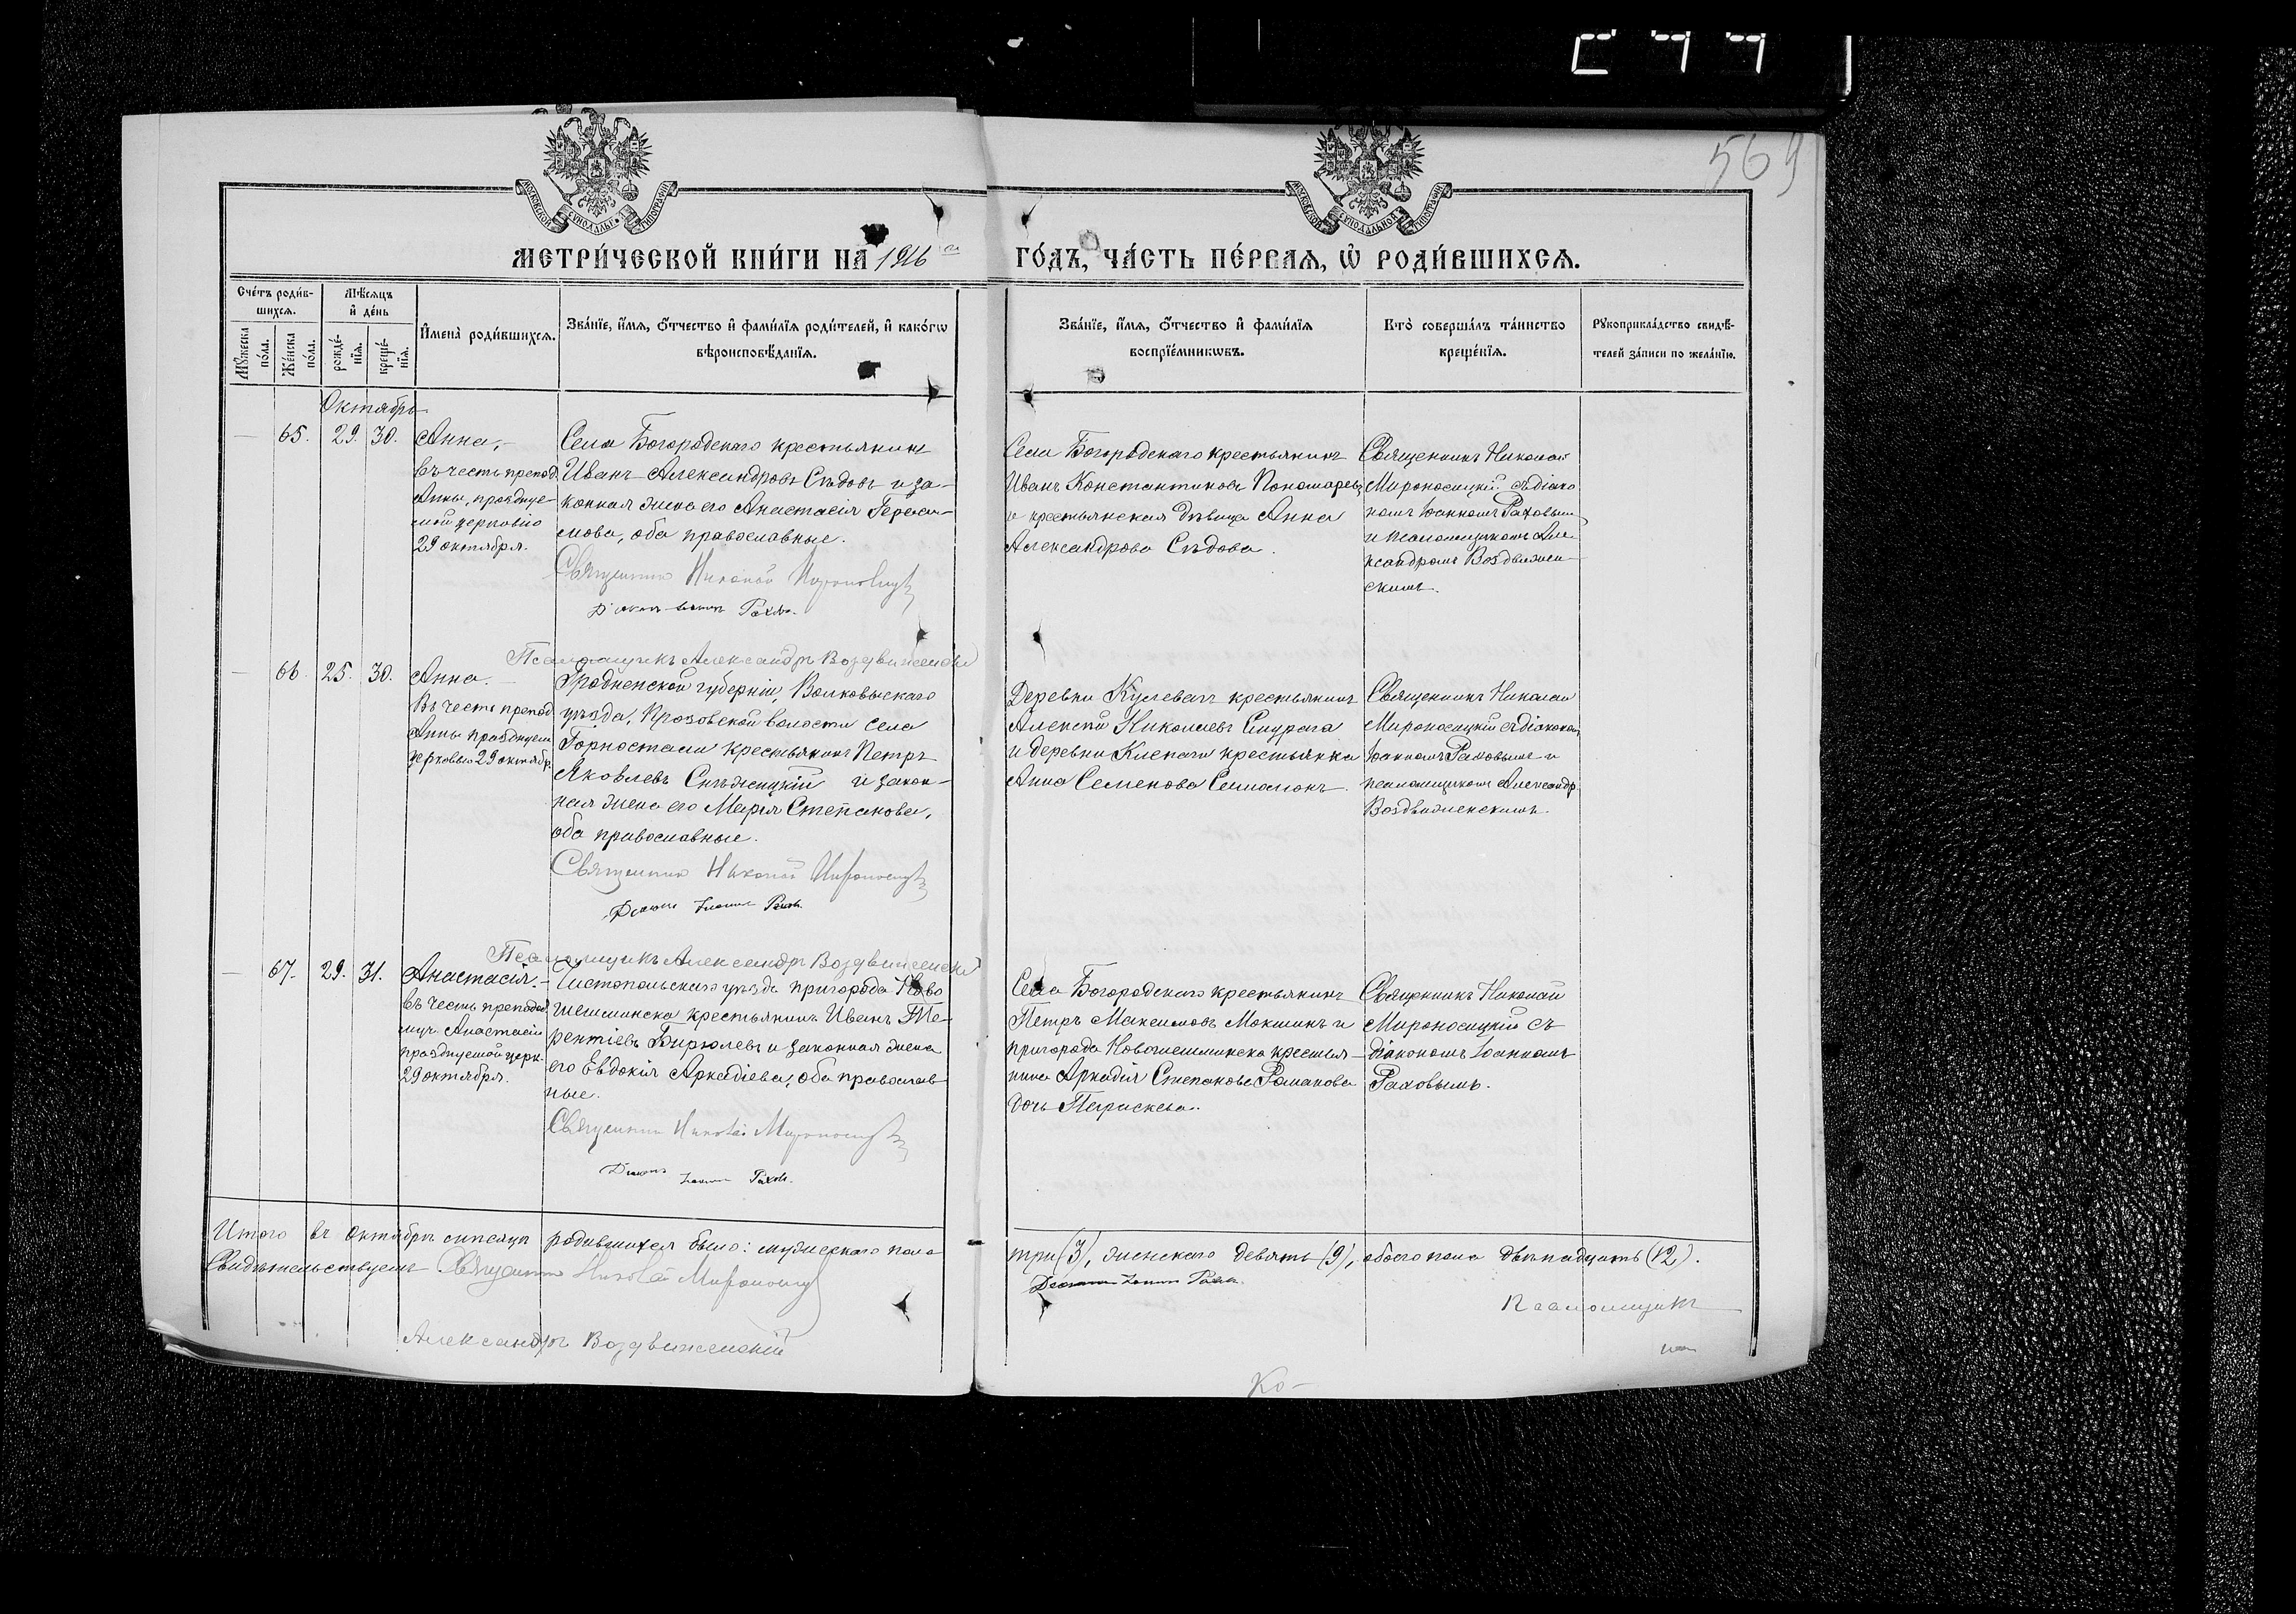 569
МЕТРИ́ЧЕСКОЙ КНИ́ГИ НА 1916 ГО́ДЪ, ЧА́СТЬ ПЕ́РВАЯ, Ѡ РОДИ́ВШИХСЯ.
Сче́тъ роди́в-
шихся.
Мꙋ́жеска по́ла.
Же́нска по́ла.
Мѣ́сяцъ и҆ де́нь
рожде́-
нїя.
креще́-
нїя.
И҆мена̀ роди́вшихся.
Зва́нїе, и҆́мя, ѻ҆́тчество и҆ фами́лїя роди́телей, и҆ како́гѡ
вѣроисповѣ́данїя.
Зва́нїе, и҆́мя, ѻ҆́тчество и҆ фами́лїя
воспрїе́мникѡвъ.
Кто̀ соверша́лъ та́инство
креще́нїя.
Рꙋкоприкла́дство свидѣ́-
телей за́писи по жела́нїю.
Октябрь
65. 29. 30. Анна,
въ честь препод.
Анны, праздцуе-
мой церковію
29 октября.
Села Богородскаго крестьянинъ
Иванъ Александровъ Сѣдовъ и за-
конная жена его Анастасія Гераси-
мова, оба православные.
Священникъ Николай Мироносицкій
Діаконъ Іоаннъ Раховъ.
Псаломщикъ Александръ Воздвиженскій
Села Богородскаго крестьянинъ
Иванъ Константиновъ Пономаревъ
и крестьянская дѣвица Анна
Александрова Сѣдова.
Священникъ Николай
Мироносицкій съ діако
номъ Іоанномъ Раховымъ
и псаломщикомъ Але-
ксандромъ Воздвижен-
скимъ.
66. 25. 30. Анна.
Въ честь препод
Анны празднуем
церковью 29 октябр.
Гродненской губерніи, Волковыскаго
уѣзда, Крозовской волости села
Горностаи крестьянинъ Петръ
Яковлевъ Снѣжицкій и закон-
ная жена его Марія Степанова,
оба православные.
Священникъ Николай Мироносицкій
Діаконъ Іоаннъ Раховъ.
Псаломщикъ Александръ Воздвиженскій
Деревни крестьянинъ
Алексѣй Николаевъ
и деревни крестьянка
Анна Семенова
Священникъ Николай
Мироносицкій съ діаконом
Іоанномъ Раховымъ и
псаломщикомъ Александр.
Воздвиженскимъ.
67. 29. 31. Анастасія.
въ честь преподоб
муч. Анастасіи
празднуемой церк.
29 октября.
Чистопольскаго уѣзда пригорода Ново
шешминска крестьянинъ Иванъ Те-
рентіевъ Бирюлевъ и законная жена
его Евдокія Аркадіева, оба православ
ные.
Священникъ Николай Мироносицкій
Діаконъ Іоаннъ Раховъ.
Села Богородскаго крестьянинъ
Петръ Максимовъ Мокшинъ и
пригорода Новошешминска крестья-
нина Аркадія Степанова Романова
дочь Параскева.
Священникъ Николай
Мироносицкій съ
діакономъ Іоанномъ
Раховымъ.
Итого въ октябрѣ мѣсяцѣ родившихся было: мужескаго пола три (3), женскаго девять (9), обоего пола двѣнадцать (12).
Свидѣтельствуемъ Священникъ Николай Мироносицкій
Діаконъ Іоаннъ Раховъ
Псаломщикъ
Александръ Воздвиженскій
Ко-